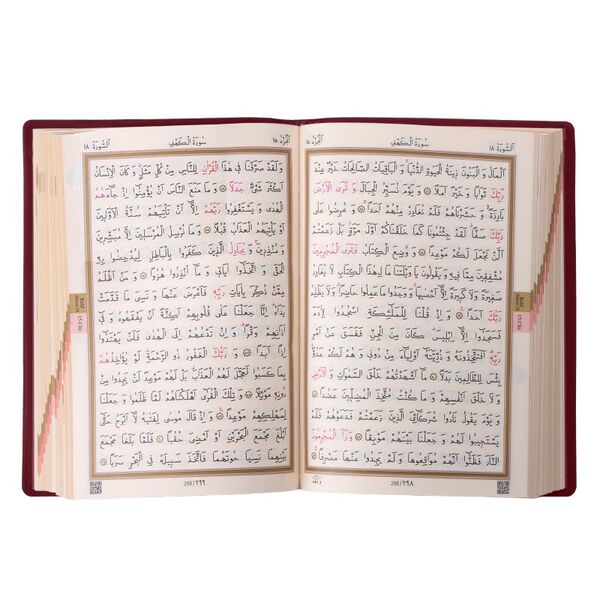 اَلسُّورَةُ ١٨ سُورَةُ الْكَهْفِ اَلْجُزْءُ ١٥
اَلْمَالُ وَ الْبَنُونَ زِينَةُ الْحَيٰوةِ الدُّنْيَا وَ الْبَاقِيَاتُ الصَّالِحَاتُ خَيْرٌ عِنْدَ
رَبِّكَ ثَوَابًا وَ خَيْرٌ اَمَلًا وَ يَوْمَ نُسَيِّرُ الْجِبَالَ وَ تَرَى الْاَرْضَ
بَارِزَةً وَ حَشَرْنَاهُمْ فَلَمْ نُغَادِرْ مِنْهُمْ اَحَدًا وَ عُرِضُوا عَلٰى
رَبِّكَ صَفًّا لَقَدْ جِئْتُمُونَا كَمَا خَلَقْنَاكُمْ اَوَّلَ مَرَّةٍ بَلْ زَعَمْتُمْ
اَلَّنْ نَجْعَلَ لَكُمْ مَوْعِدًا وَ وُضِعَ الْكِتَابُ فَتَرَى الْمُجْرِمِينَ
مُشْفِقِينَ مِمَّا فِيهِ وَ يَقُولُونَ يَا وَيْلَتَنَا مَالِ هٰذَا الْكِتَابِ لَا يُغَادِرُ
صَغِيرَةً وَ لَا كَبِيرَةً اِلَّا اَحْصٰيهَا وَ وَجَدُوا مَا عَمِلُوا حَاضِرًا وَ لَا يَظْلِمُ
رَبُّكَ اَحَدًا وَ اِذْ قُلْنَا لِلْمَلٰٓئِكَةِ اسْجُدُوا لِاٰدَمَ
فَسَجَدُوا اِلَّا اِبْلِيسَ كَانَ مِنَ الْجِنِّ فَفَسَقَ عَنْ اَمْرِ
رَبِّهِ اَفَتَتَّخِذُونَهُ وَ ذُرِّيَّتَهُ اَوْلِيَاءَ مِنْ دُونِي وَ هُمْ لَكُمْ عَدُوٌّ
بِئْسَ لِلظَّالِمِينَ بَدَلًا مَا اَشْهَدْتُهُمْ خَلْقَ السَّمٰوَاتِ وَ الْاَرْضِ
وَ لَا خَلْقَ اَنْفُسِهِمْ وَ مَا كُنْتُ مُتَّخِذَ الْمُضِلِّينَ عَضُدًا
وَ يَوْمَ يَقُولُ نَادُوا شُرَكَائِيَ الَّذِينَ زَعَمْتُمْ فَدَعَوْهُمْ فَلَمْ
يَسْتَجِيبُوا لَهُمْ وَ جَعَلْنَا بَيْنَهُمْ مَوْبِقًا وَ رَاَ الْمُجْرِمُونَ
النَّارَ فَظَنُّوا اَنَّهُمْ مُوَاقِعُوهَا وَ لَمْ يَجِدُوا عَنْهَا مَصْرِفًا
298/٢٩٨
وَ لَقَدْ
اَلسُّورَةُ ١٨ سُورَةُ الْكَهْفِ اَلْجُزْءُ ١٥
وَ لَقَدْ صَرَّفْنَا فِي هٰذَا الْقُرْاٰنِ لِلنَّاسِ مِنْ كُلِّ مَثَلٍ وَ كَانَ الْاِنْسَانُ
اَكْثَرَ شَيْءٍ جَدَلًا وَ مَا مَنَعَ النَّاسَ اَنْ يُؤْمِنُوا اِذْ جَاءَهُمُ
الْهُدٰى وَ يَسْتَغْفِرُوا رَبَّهُمْ اِلَّا اَنْ تَأْتِيَهُمْ سُنَّةُ الْاَوَّلِينَ
اَوْ يَأْتِيَهُمُ الْعَذَابُ قُبُلًا وَ مَا نُرْسِلُ الْمُرْسَلِينَ اِلَّا مُبَشِّرِينَ
وَ مُنْذِرِينَ وَ يُجَادِلُ الَّذِينَ كَفَرُوا بِالْبَاطِلِ لِيُدْحِضُوا بِهِ
الْحَقَّ وَ اتَّخَذُوا اٰيَاتِي وَ مَا اُنْذِرُوا هُزُوًا وَ مَنْ اَظْلَمُ
مِمَّنْ ذُكِّرَ بِاٰيَاتِ رَبِّهِ فَاَعْرَضَ عَنْهَا وَ نَسِيَ مَا قَدَّمَتْ
يَدَاهُ اِنَّا جَعَلْنَا عَلٰى قُلُوبِهِمْ اَكِنَّةً اَنْ يَفْقَهُوهُ وَ فِي
اٰذَانِهِمْ وَقْرًا وَ اِنْ تَدْعُهُمْ اِلَى الْهُدٰى فَلَنْ يَهْتَدُوا
اِذًا اَبَدًا وَ رَبُّكَ الْغَفُورُ ذُو الرَّحْمَةِ لَوْ يُؤَاخِذُهُمْ
بِمَا كَسَبُوا لَعَجَّلَ لَهُمُ الْعَذَابَ بَلْ لَهُمْ مَوْعِدٌ لَنْ يَجِدُوا مِنْ
دُونِهِ مَوْئِلًا وَ تِلْكَ الْقُرٰى اَهْلَكْنَاهُمْ لَمَّا ظَلَمُوا وَ جَعَلْنَا
لِمَهْلِكِهِمْ مَوْعِدًا وَ اِذْ قَالَ مُوسٰى لِفَتٰيهُ لَا اَبْرَحُ حَتّٰى
اَبْلُغَ مَجْمَعَ الْبَحْرَيْنِ اَوْ اَمْضِيَ حُقُبًا فَلَمَّا بَلَغَا مَجْمَعَ
بَيْنِهِمَا نَسِيَا حُوتَهُمَا فَاتَّخَذَ سَبِيلَهُ فِي الْبَحْرِ سَرَبًا
299/٢٩٩